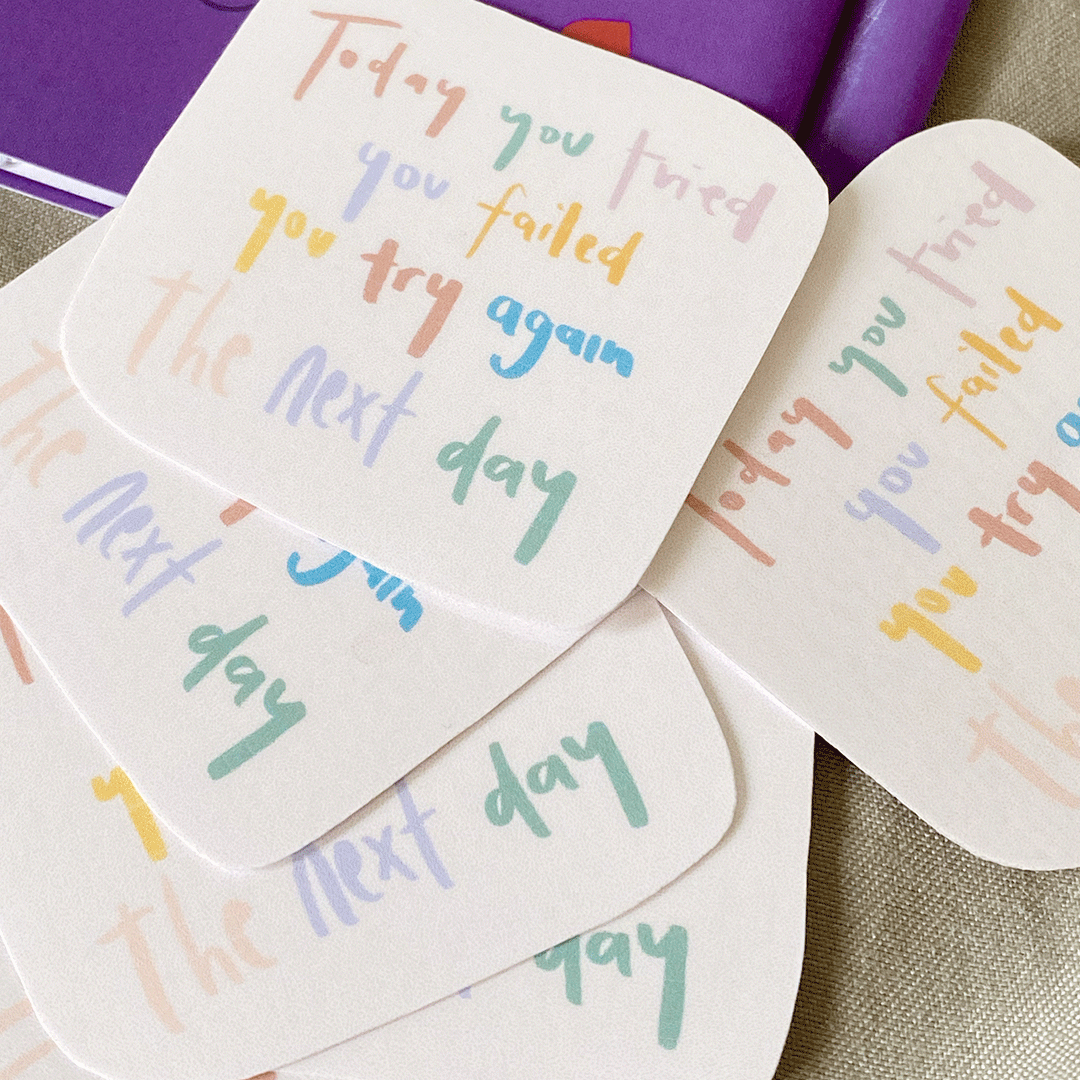 Today you tried
you failed
you try again
the next day
Today you tried
you failed
you try
the
gain
the next
day
the next day
day